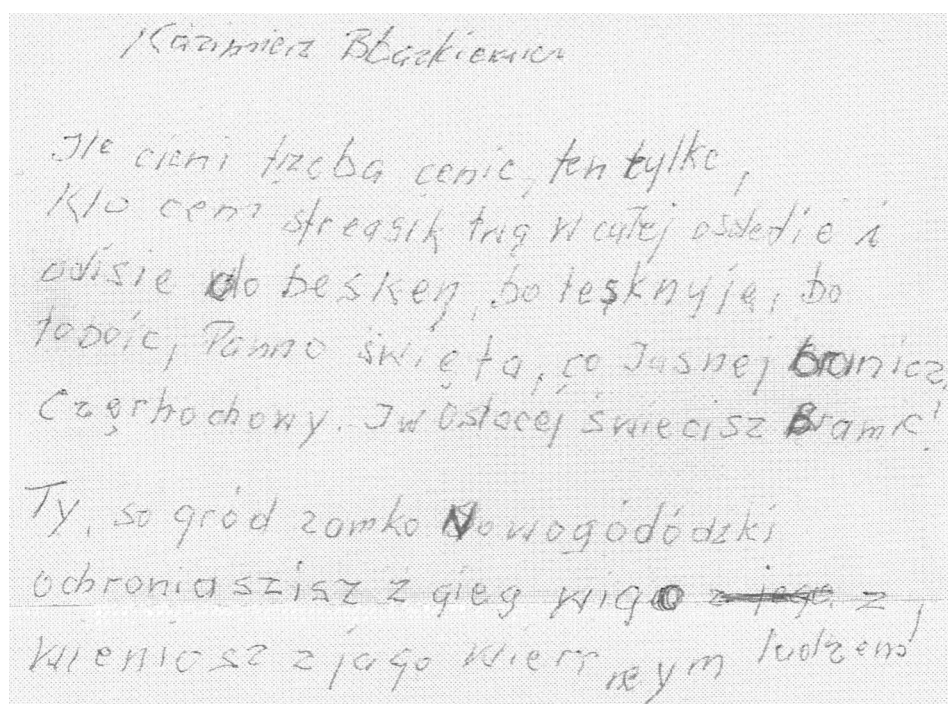 Kazimierz Błazkiewicz
Ile cieni trzeba cenic, ten tylko,
Kto ceni streasik trią w całej ossledie i
odisie do besken, bo tesknyja, bo
toboic, Panno święta, co Jasnej branicz
Częrhochowy. I w Ostocej świecisz Bramic!
Ty, so gród zomko Nowogódódzki
ochroniaszisz z gieg wigo z jego z
wieniosz z jago wierr nym ludzem!